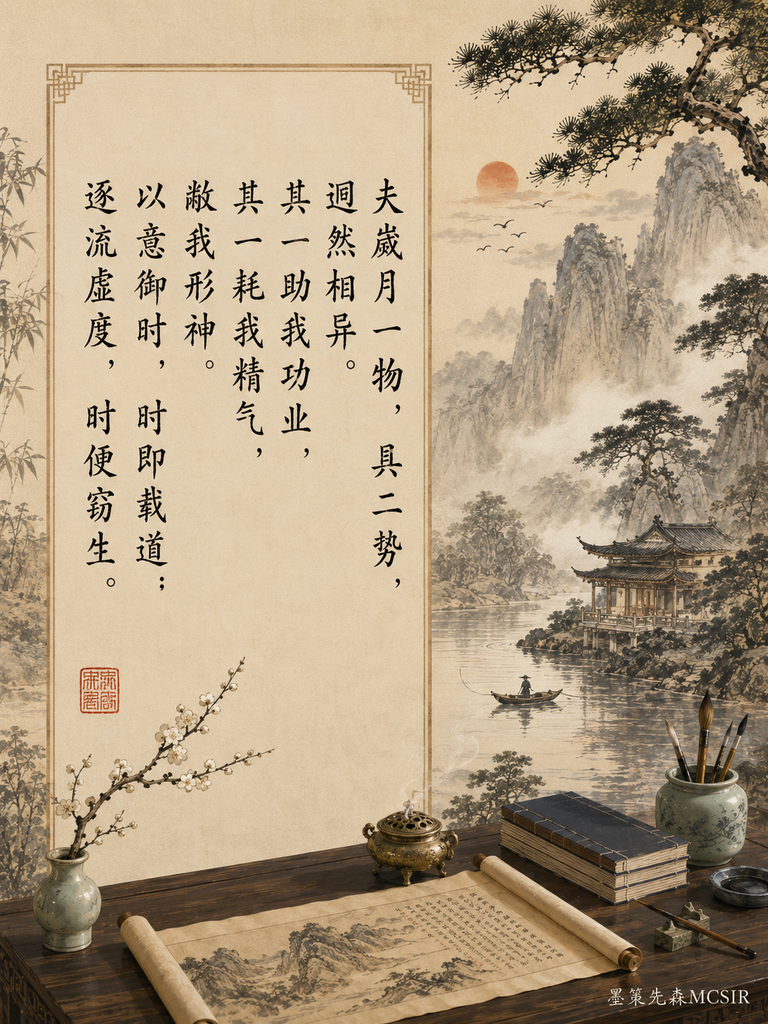 夫嵗月一物，具二势，
迥然相异。
其一助我功业，
其一耗我精气，
敝我形神。
以意御时，时即载道；
逐流虚度，时便窃生。
墨策先森MCSIR